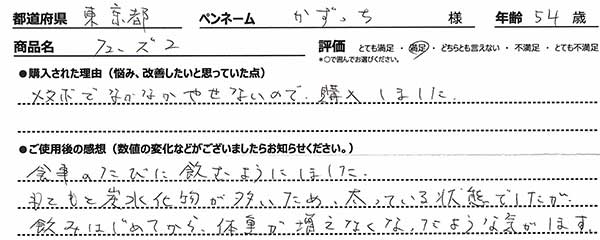 都道府県 東京都 ペンネーム かずっち 様 年齢 54 歳
商品名 フューズ2 評価 とても満足 ・ 満足 ・ どちらとも言えない ・ 不満足 ・ とても不満足
*○で囲んでお選びください。
●購入された理由（悩み、改善したいと思っていた点）
メタボでなかなかやせないので、購入しました.
●ご使用後の感想（数値の変化などがございましたらお知らせください。）
食事のたびに飲むようにしました.
もともと炭水化物が多いため、太っている状態でしたが、
飲みはじめてから、体重が増えなくなったような気がします。